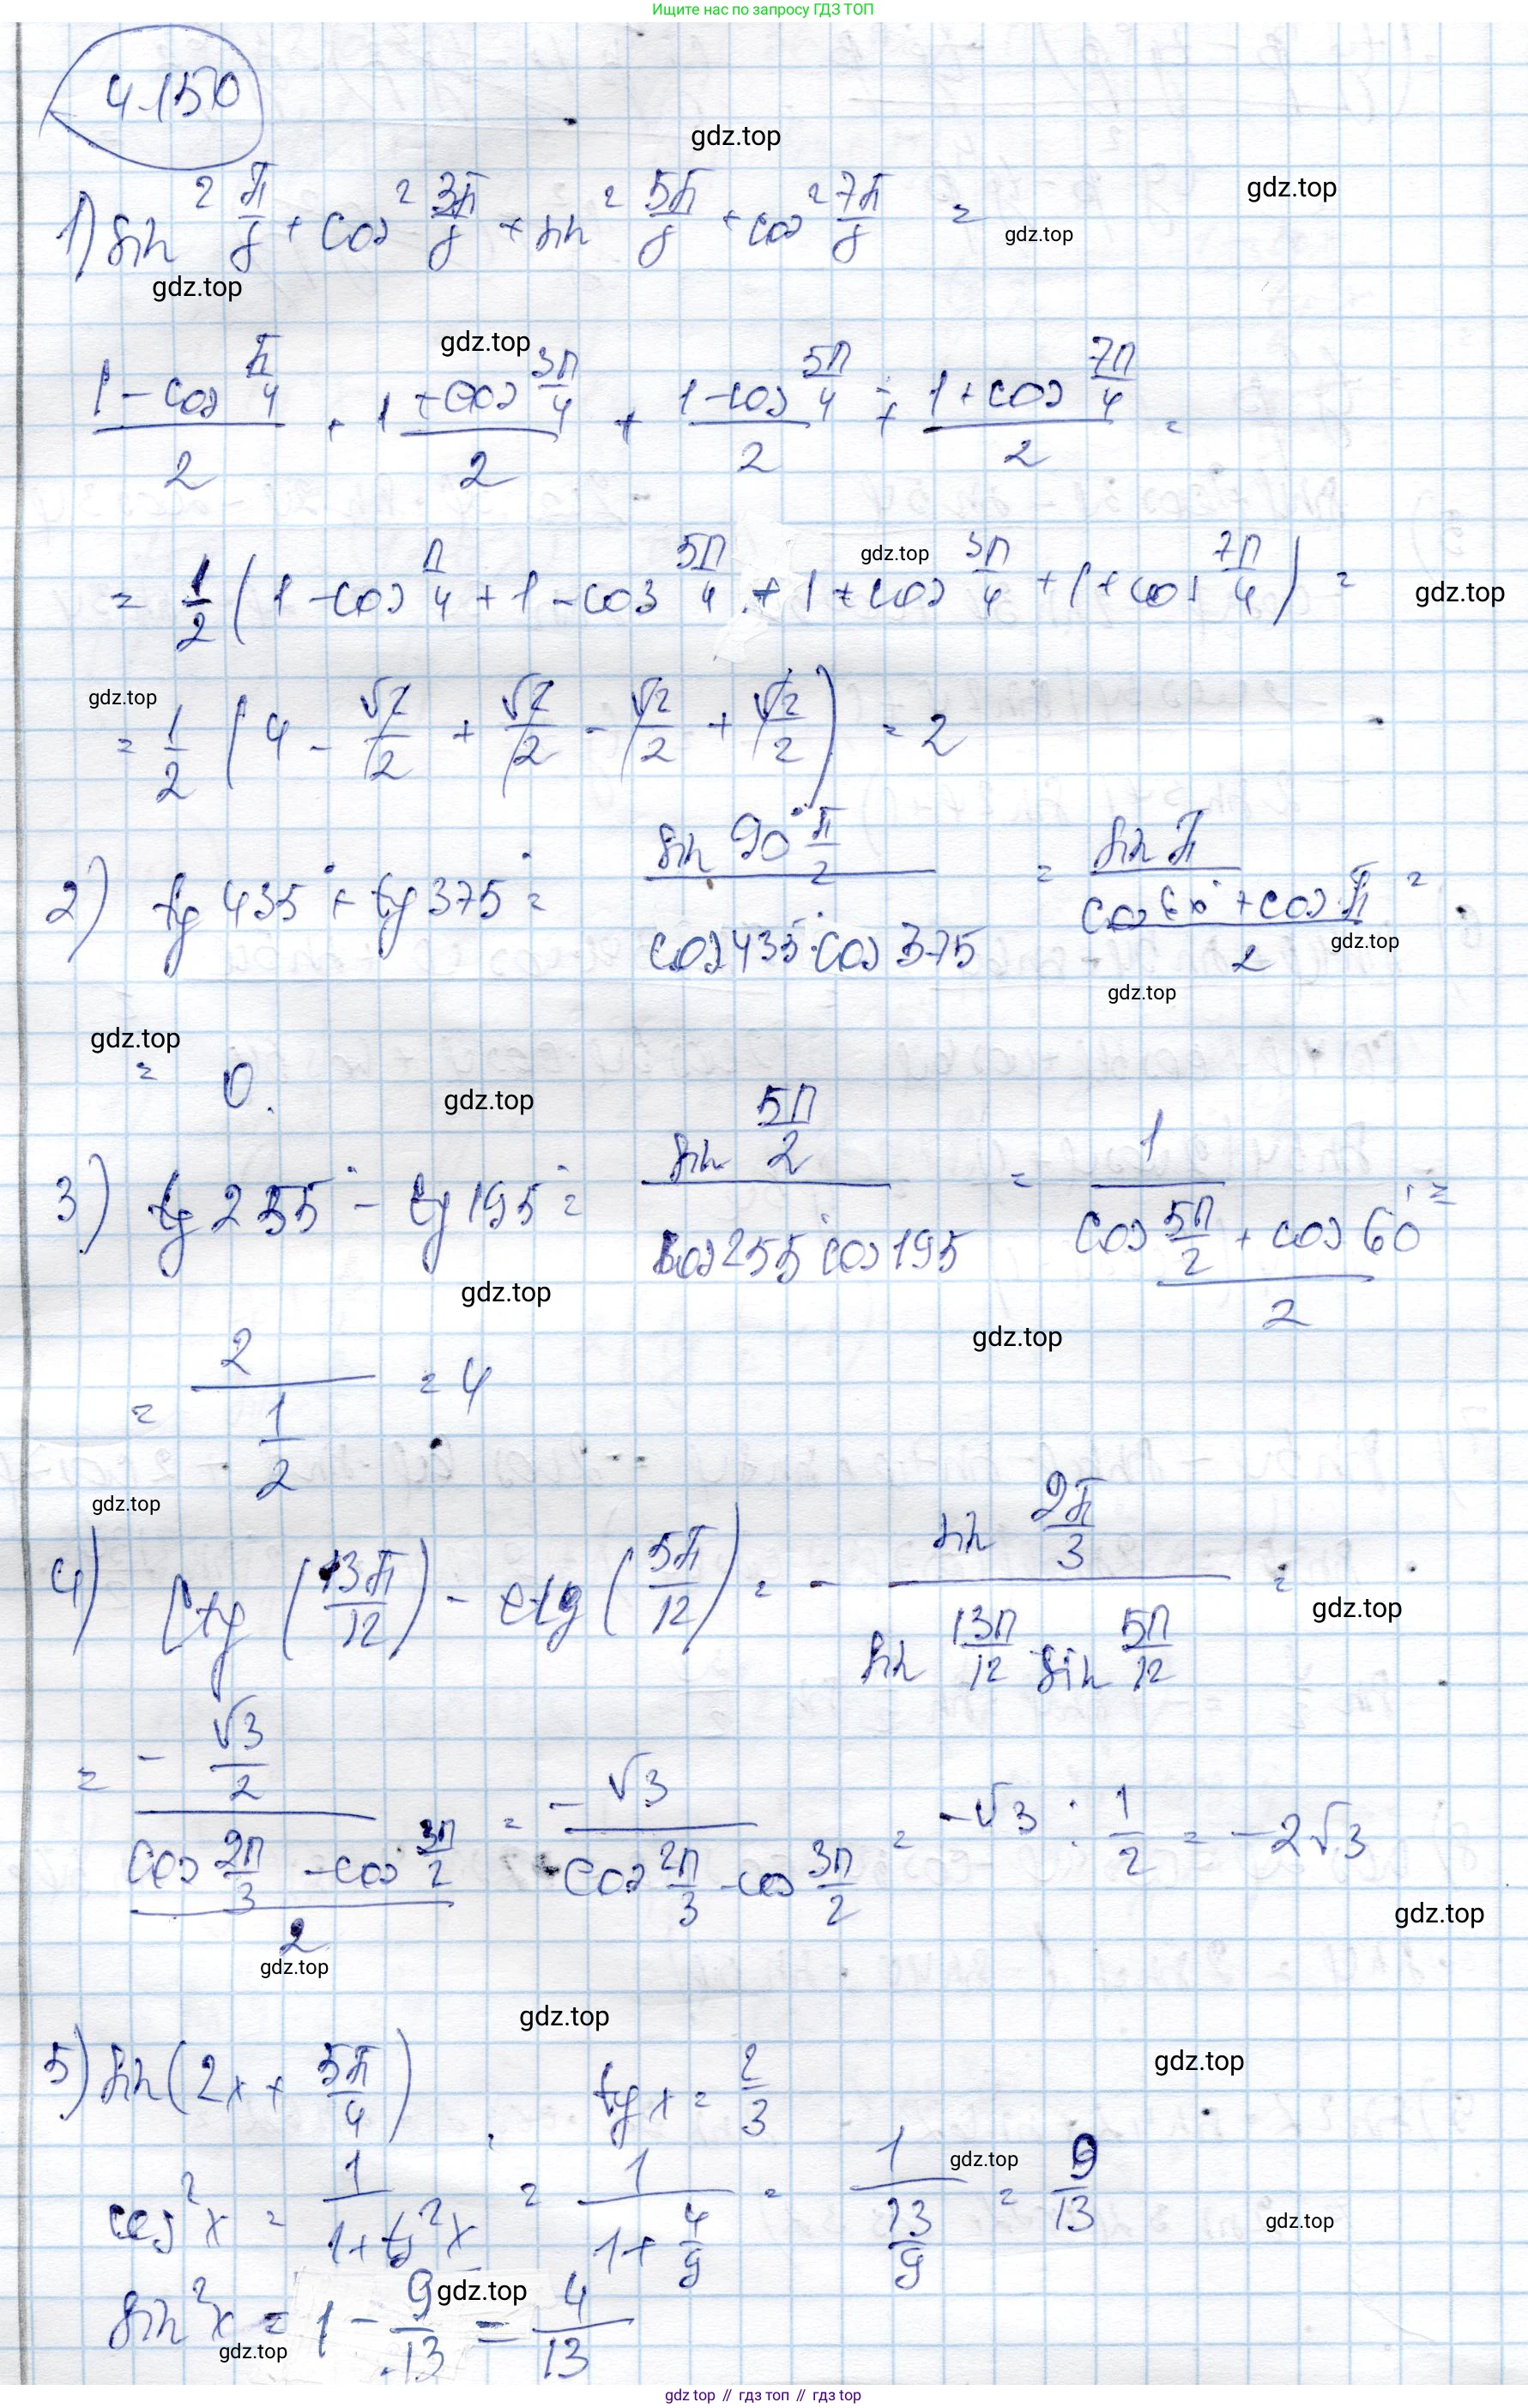 Ищите нас по запросу ГДЗ ТОП
4.150
gdz.top
gdz.top
1) sin² π/8 + cos² 3π/8 + sin² 5π/8 + cos² 7π/8 =
gdz.top
gdz.top
gdz.top
(1 - cos π/4)/2 + (1 + cos 3π/4)/2 + (1 - cos 5π/4)/2 + (1 + cos 7π/4)/2 =
gdz.top
= 1/2 (1 - cos π/4 + 1 - cos 5π/4 + 1 + cos 3π/4 + 1 + cos 7π/4) =
gdz.top
gdz.top
= 1/2 (4 - √2/2 + √2/2 - √2/2 + √2/2) = 2
2) tg 435° + tg 375° = (sin 90° π/2)/(cos 435° · cos 375) = (sin π)/((cos 60° + cos π)/2) =
gdz.top
gdz.top
gdz.top
= 0.
gdz.top
3) tg 255° - tg 195° = (sin 5π/2)/(cos 255° cos 195) = 1/((cos 5π/2 + cos 60°)/2) =
gdz.top
gdz.top
= 2/(1/2) = 4
gdz.top
4) ctg (13π/12) - ctg (5π/12) = - (sin 2π/3)/(sin 13π/12 sin 5π/12) =
gdz.top
= (- √3/2)/((cos 2π/3 - cos 3π/2)/2) = (-√3)/(cos 2π/3 - cos 3π/2) = -√3 : 1/2 = -2√3
gdz.top
gdz.top
gdz.top
gdz.top
5) sin (2x + 5π/4), tg x = 2/3
gdz.top
cos² x = 1/(1 + tg² x) = 1/(1 + 4/9) = 1/(13/9) = 9/13
gdz.top
gdz.top
sin² x = 1 - 9/13 = 4/13
gdz.top
gdz top // гдз топ // гдз top